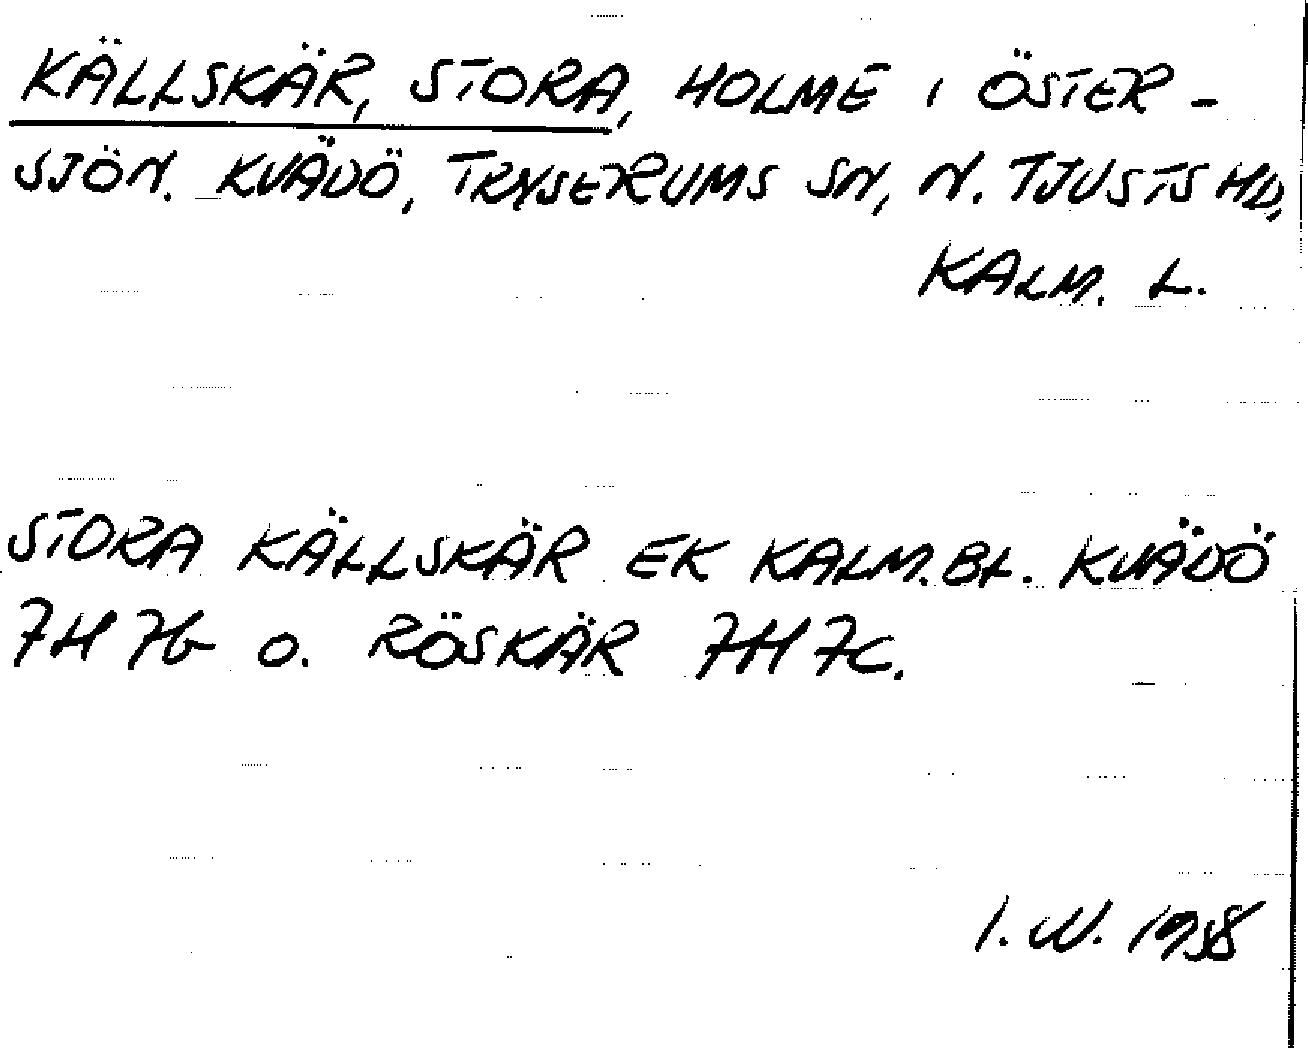 KÄLLSKÄR, STORA, HOLME I ÖSTER-
SJÖN. KVÄDÖ, TRYSERUMS SN, N. TJUSTS HD,
KALM. L.
STORA KÄLLSKÄR EK KALM.BL. KVÄDÖ
7H 7b O. RÖSKÄR 7H 7C.
I. W. 1958